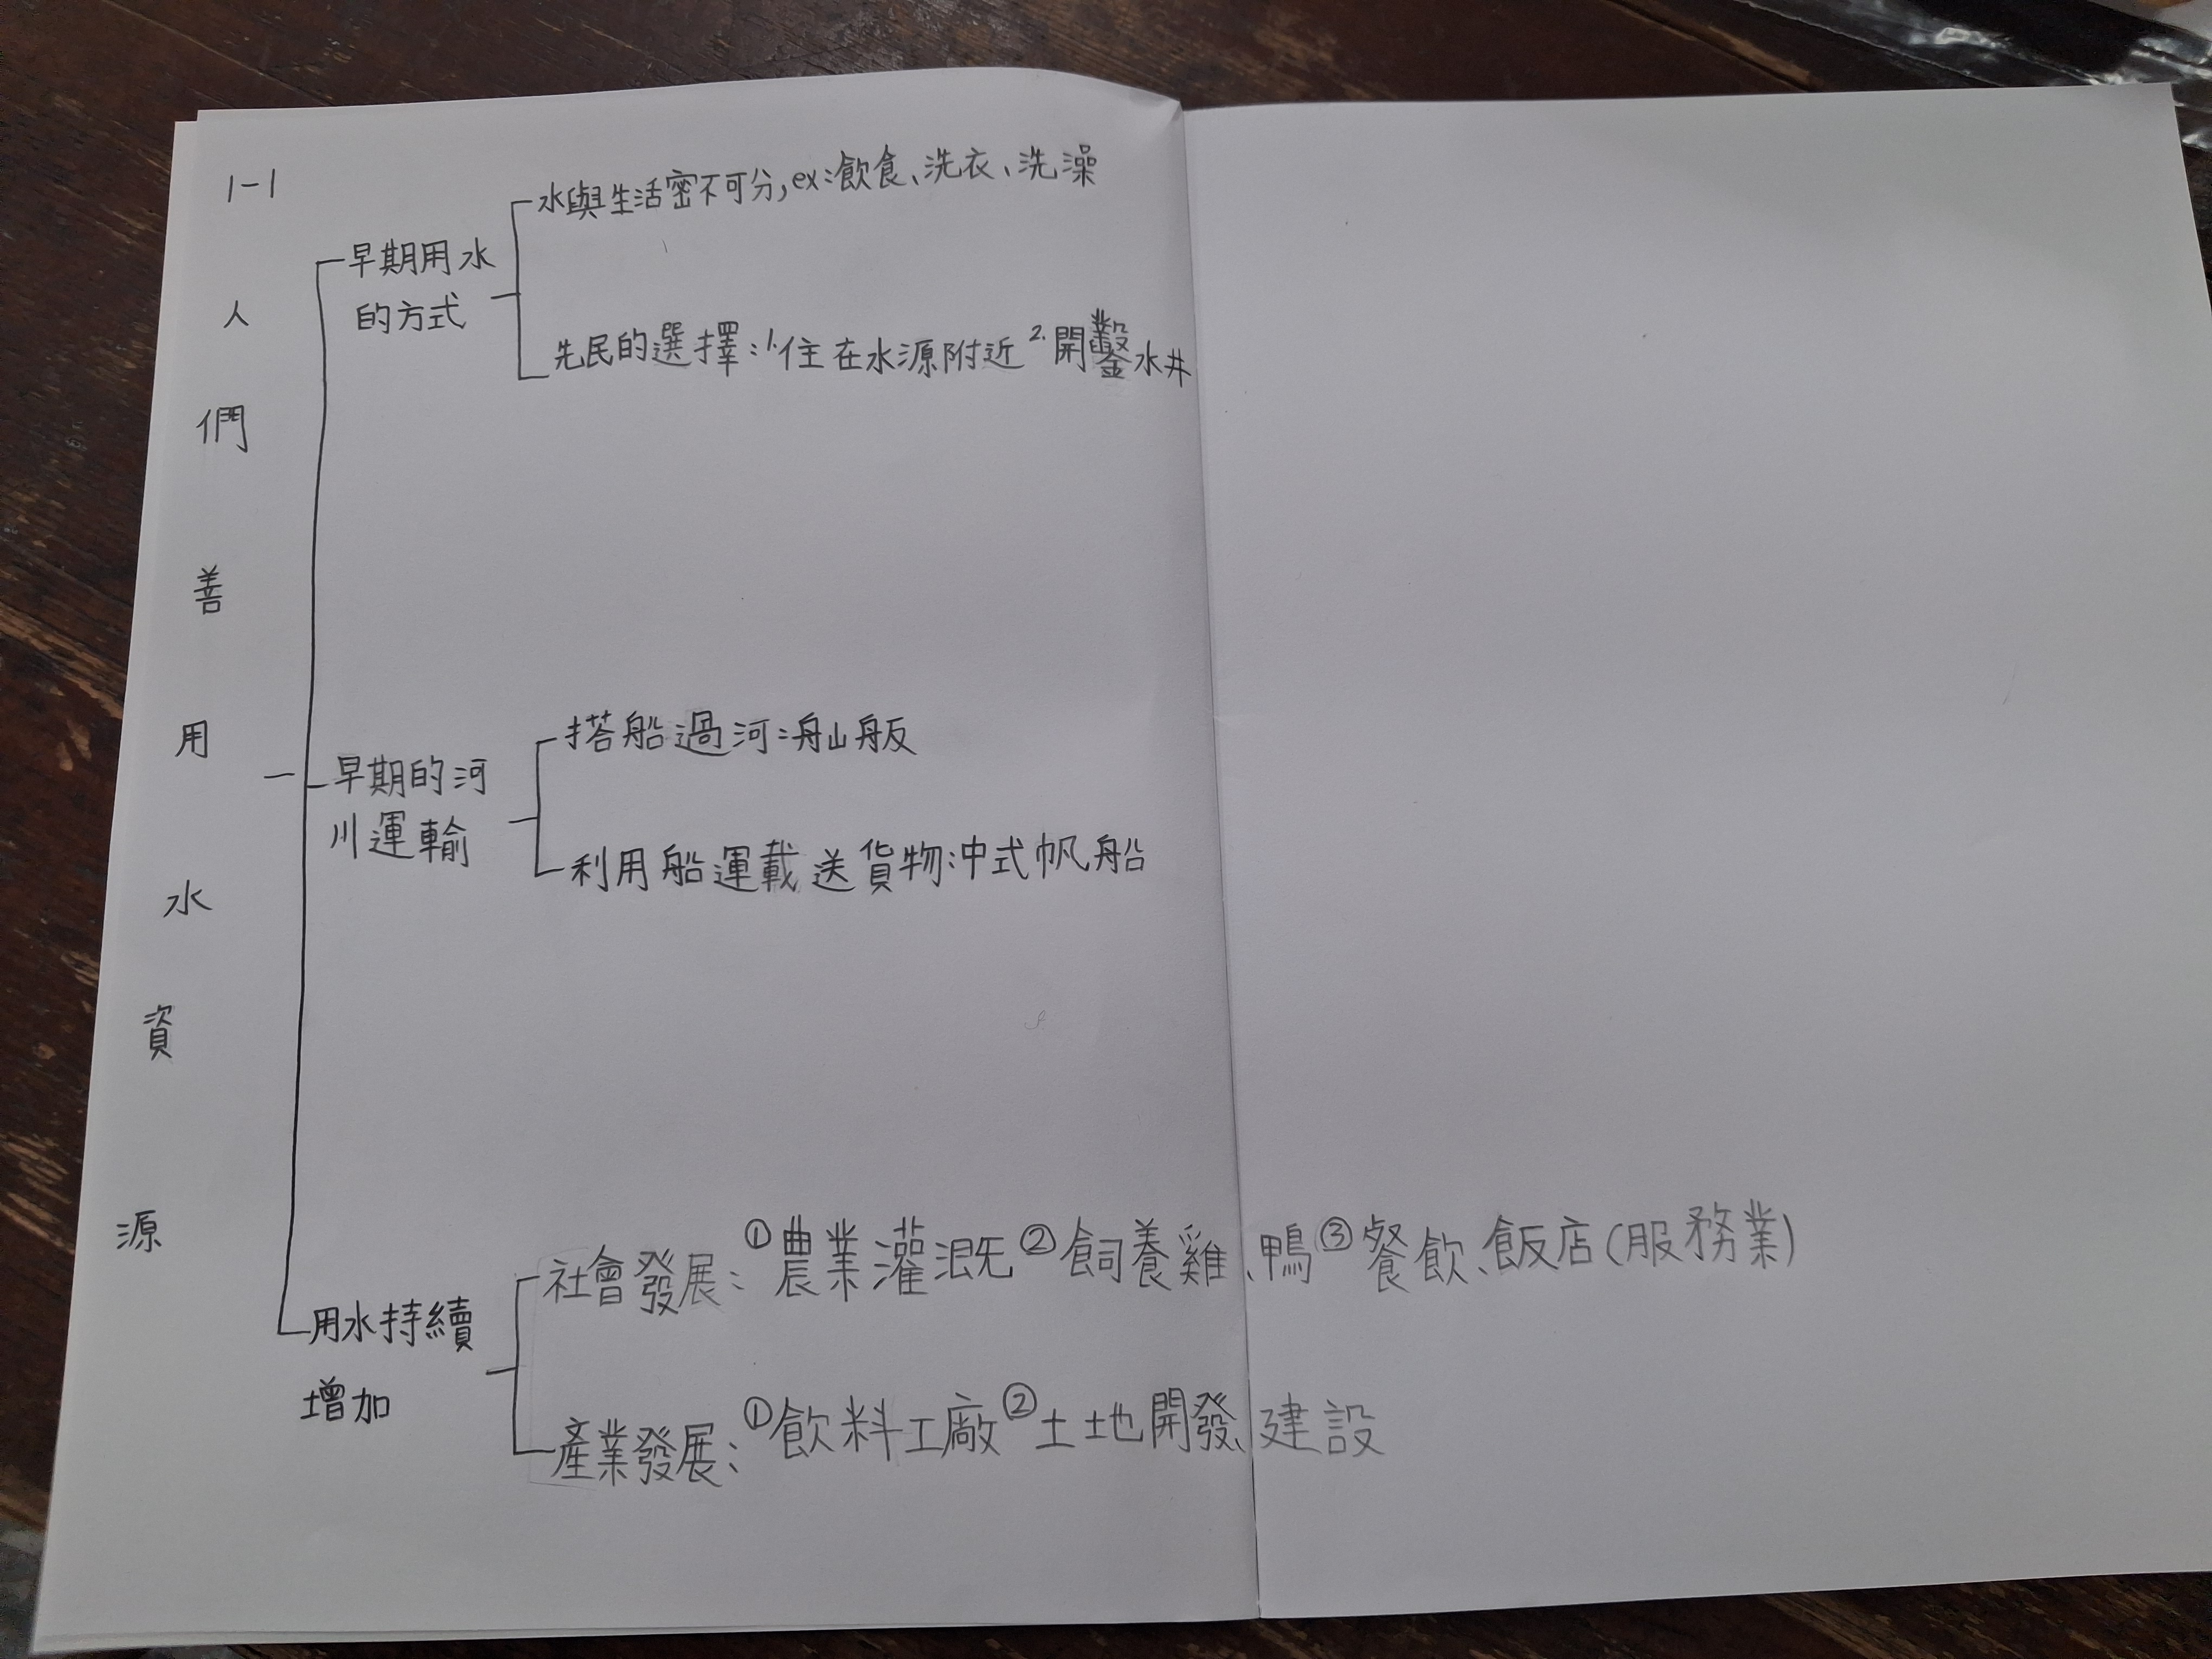 1-1
人們善用水資源
早期用水
的方式
水與生活密不可分,ex:飲食、洗衣、洗澡
先民的選擇:1.住在水源附近2.開鑿水井
早期的河
川運輸
搭船過河:舢舨
利用船運載送貨物:中式帆船
用水持續
增加
社會發展:①農業灌溉②飼養雞、鴨③餐飲、飯店(服務業)
產業發展:①飲料工廠②土地開發、建設